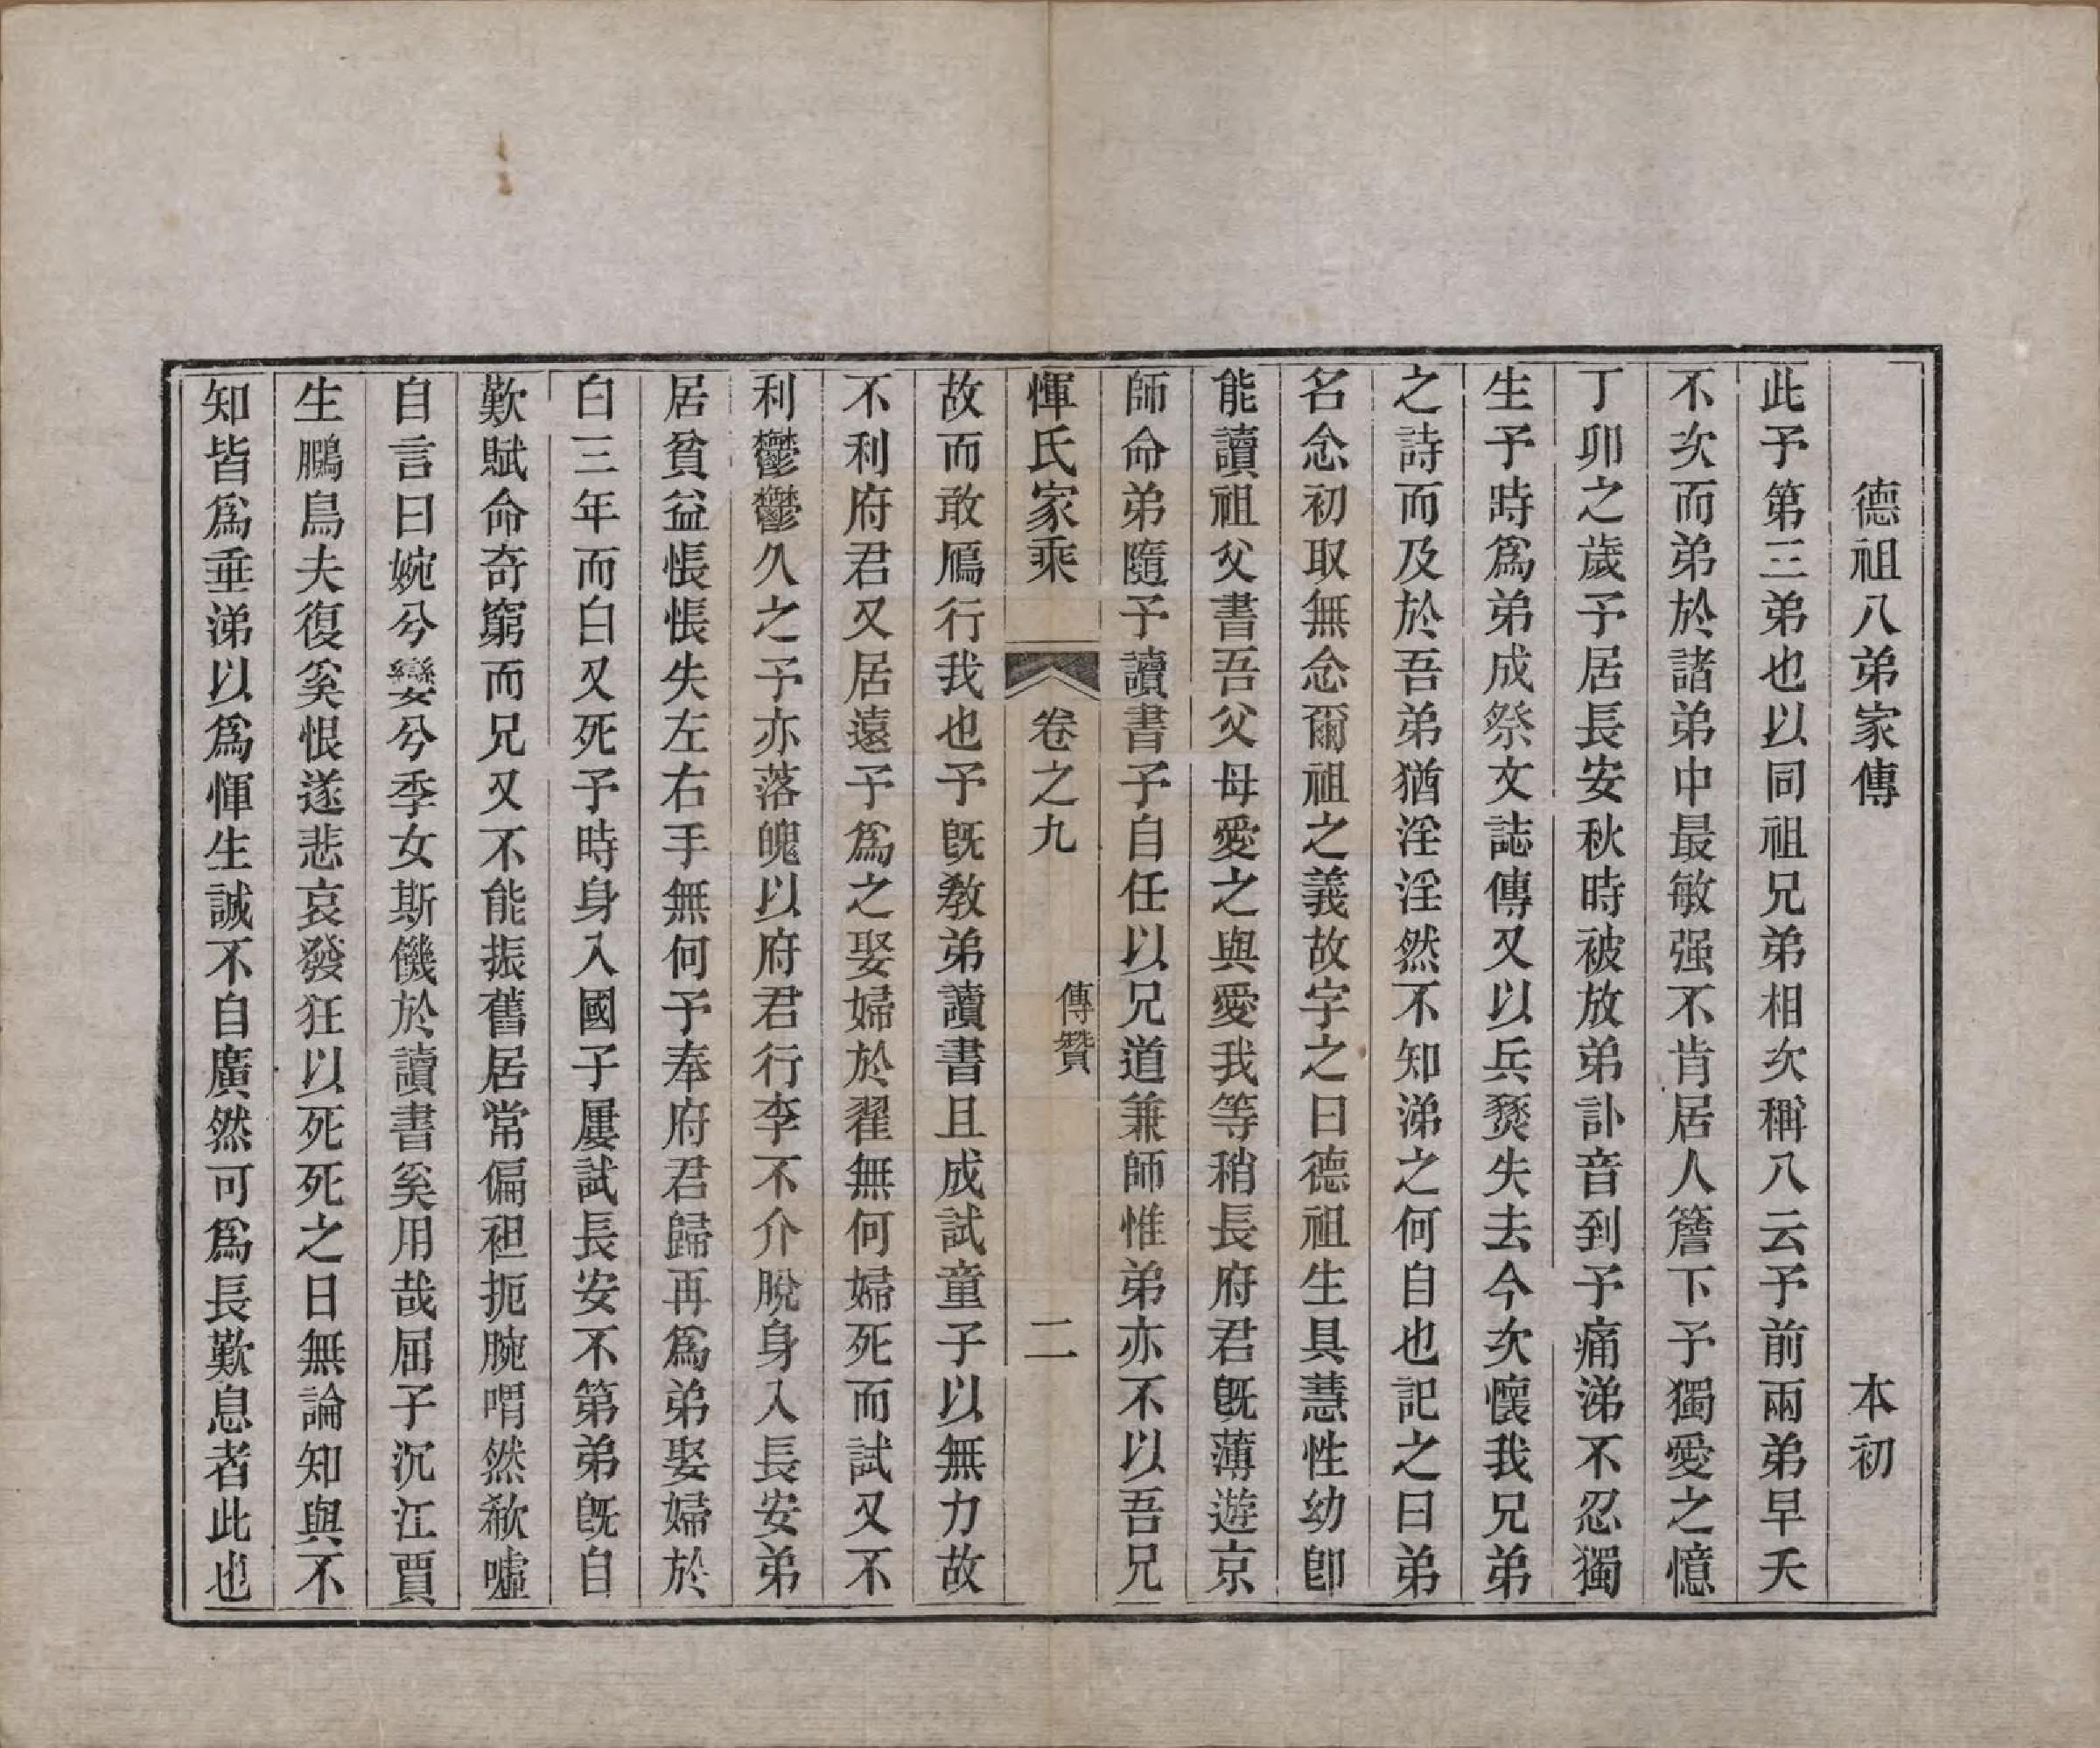 德祖八弟家傳 本初
此予第三弟也以同祖兄弟相次稱八云予前兩弟早夭
不次而弟於諸弟中最敏强不肯居人簷下予獨愛之憶
丁卯之歲予居長安秋時被放弟訃音到予痛涕不忍獨
生予時爲弟成祭文誌傳又以兵燹失去今次懷我兄弟
之詩而及於吾弟猶淫淫然不知涕之何自也記之曰弟
名念初取無念爾祖之義故字之曰德祖生具慧性幼卽
能讀祖父書吾父母愛之與愛我等稍長府君旣薄遊京
師命弟隨予讀書予自任以兄道兼師惟弟亦不以吾兄
惲氏家乘 卷之九 傳贊 二
故而敢鴈行我也予旣敎弟讀書且成試童子以無力故
不利府君又居遠予爲之娶婦於翟無何婦死而試又不
利鬱鬱久之予亦落魄以府君行李不介脫身入長安弟
居貧益悵悵失左右手無何予奉府君歸再爲弟娶婦於
白三年而白又死予時身入國子屢試長安不第弟旣自
歎賦命奇窮而兄又不能振舊居常偏袒扼腕喟然欷噓
自言曰婉兮孌兮季女斯饑於讀書奚用哉屈子沉江賈
生鵩鳥夫復奚恨遂悲哀發狂以死死之日無論知與不
知皆爲垂涕以爲惲生誠不自廣然可爲長歎息者此也